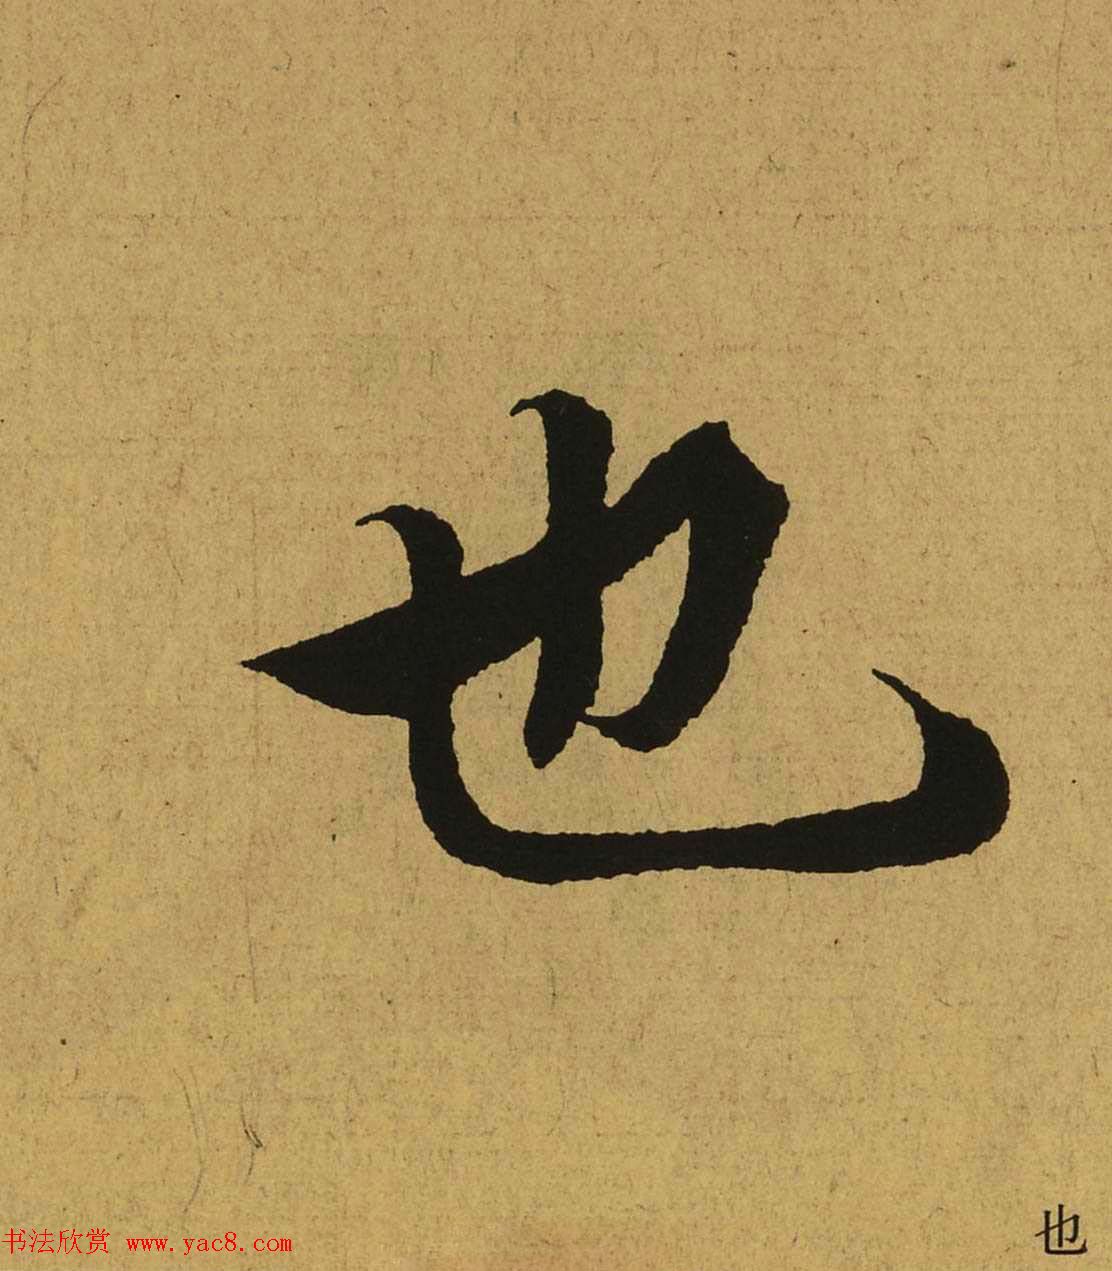 也
书法欣赏 www.yac8.com
也